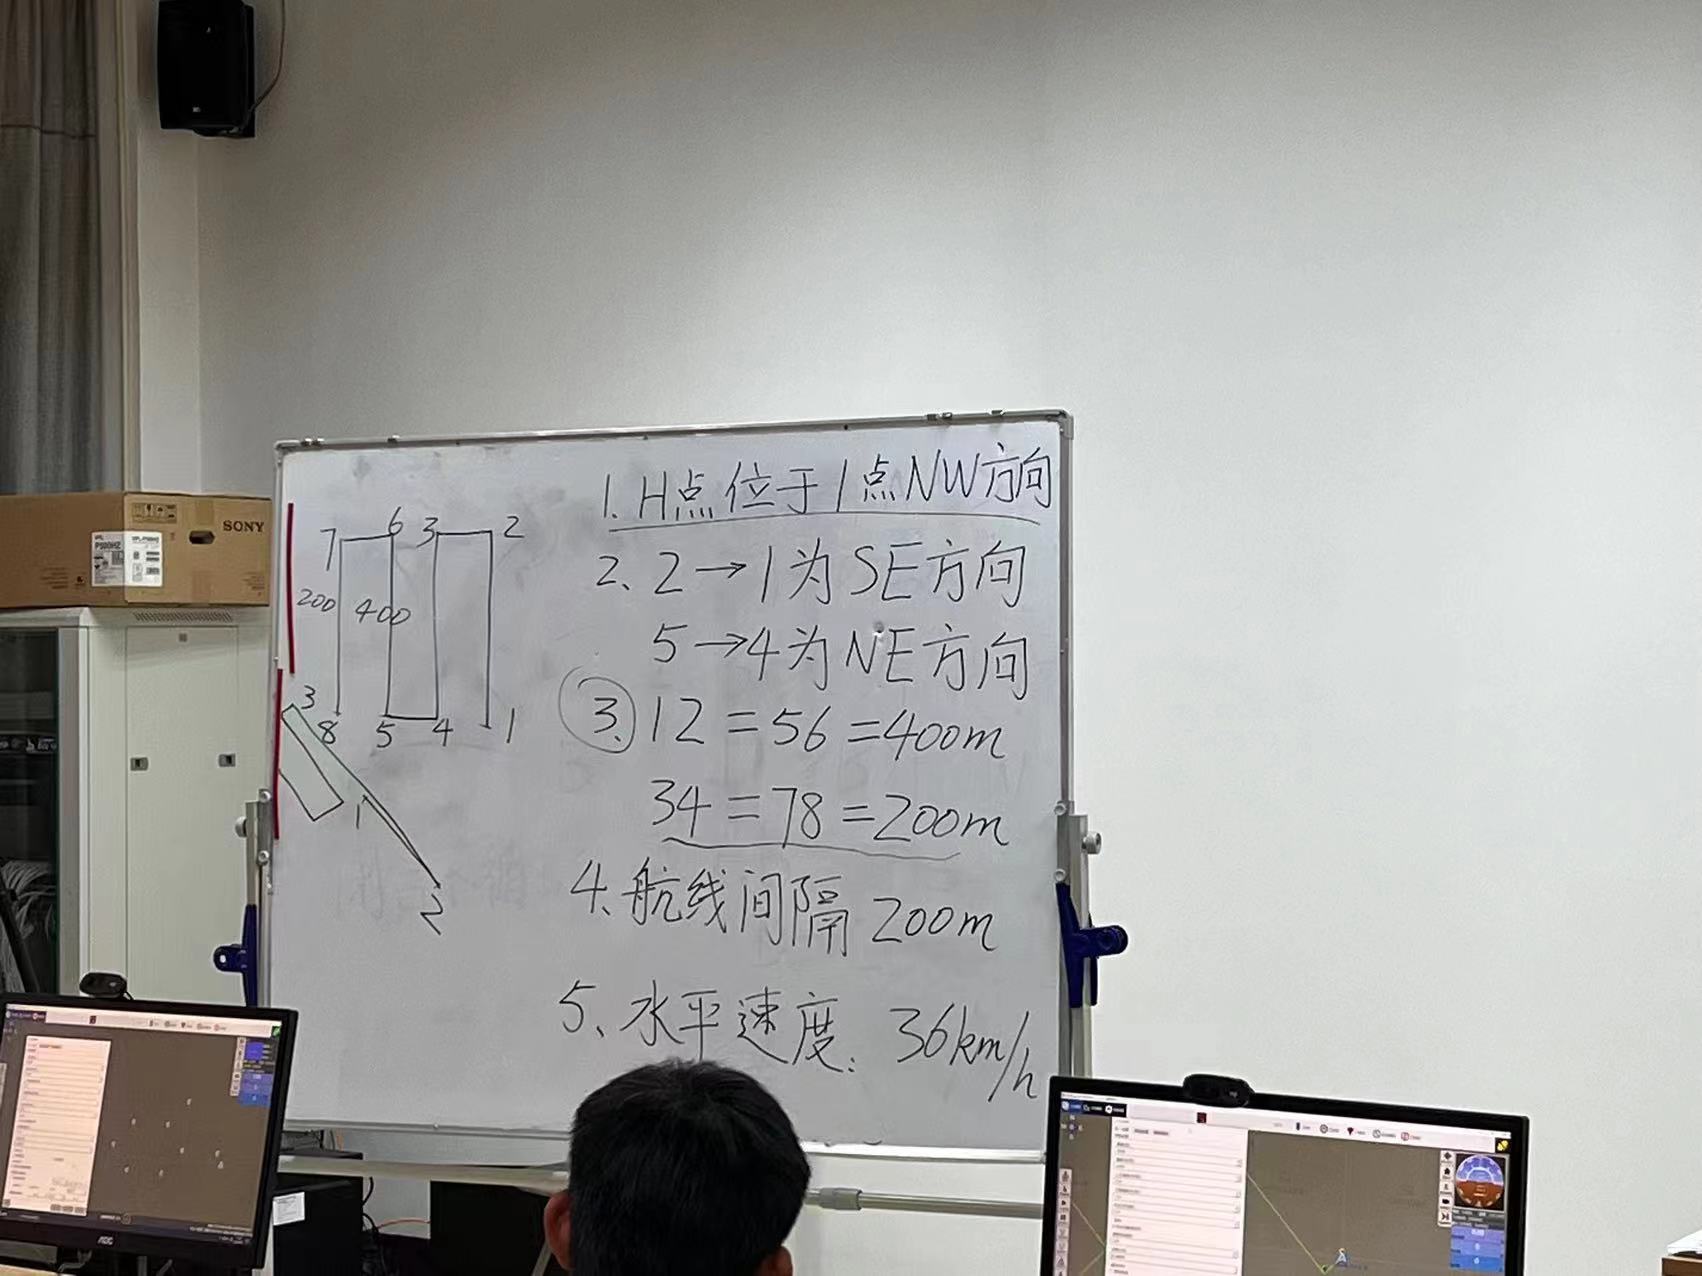 SONY
7 6 3 2
200 400
8 5 4 1
3
1
2
1. H点位于1点NW方向
2、2→1为SE方向
5→4为NE方向
3、12=56=400m
34=78=200m
4、航线间隔200m
5、水平速度：36km/h
AOC